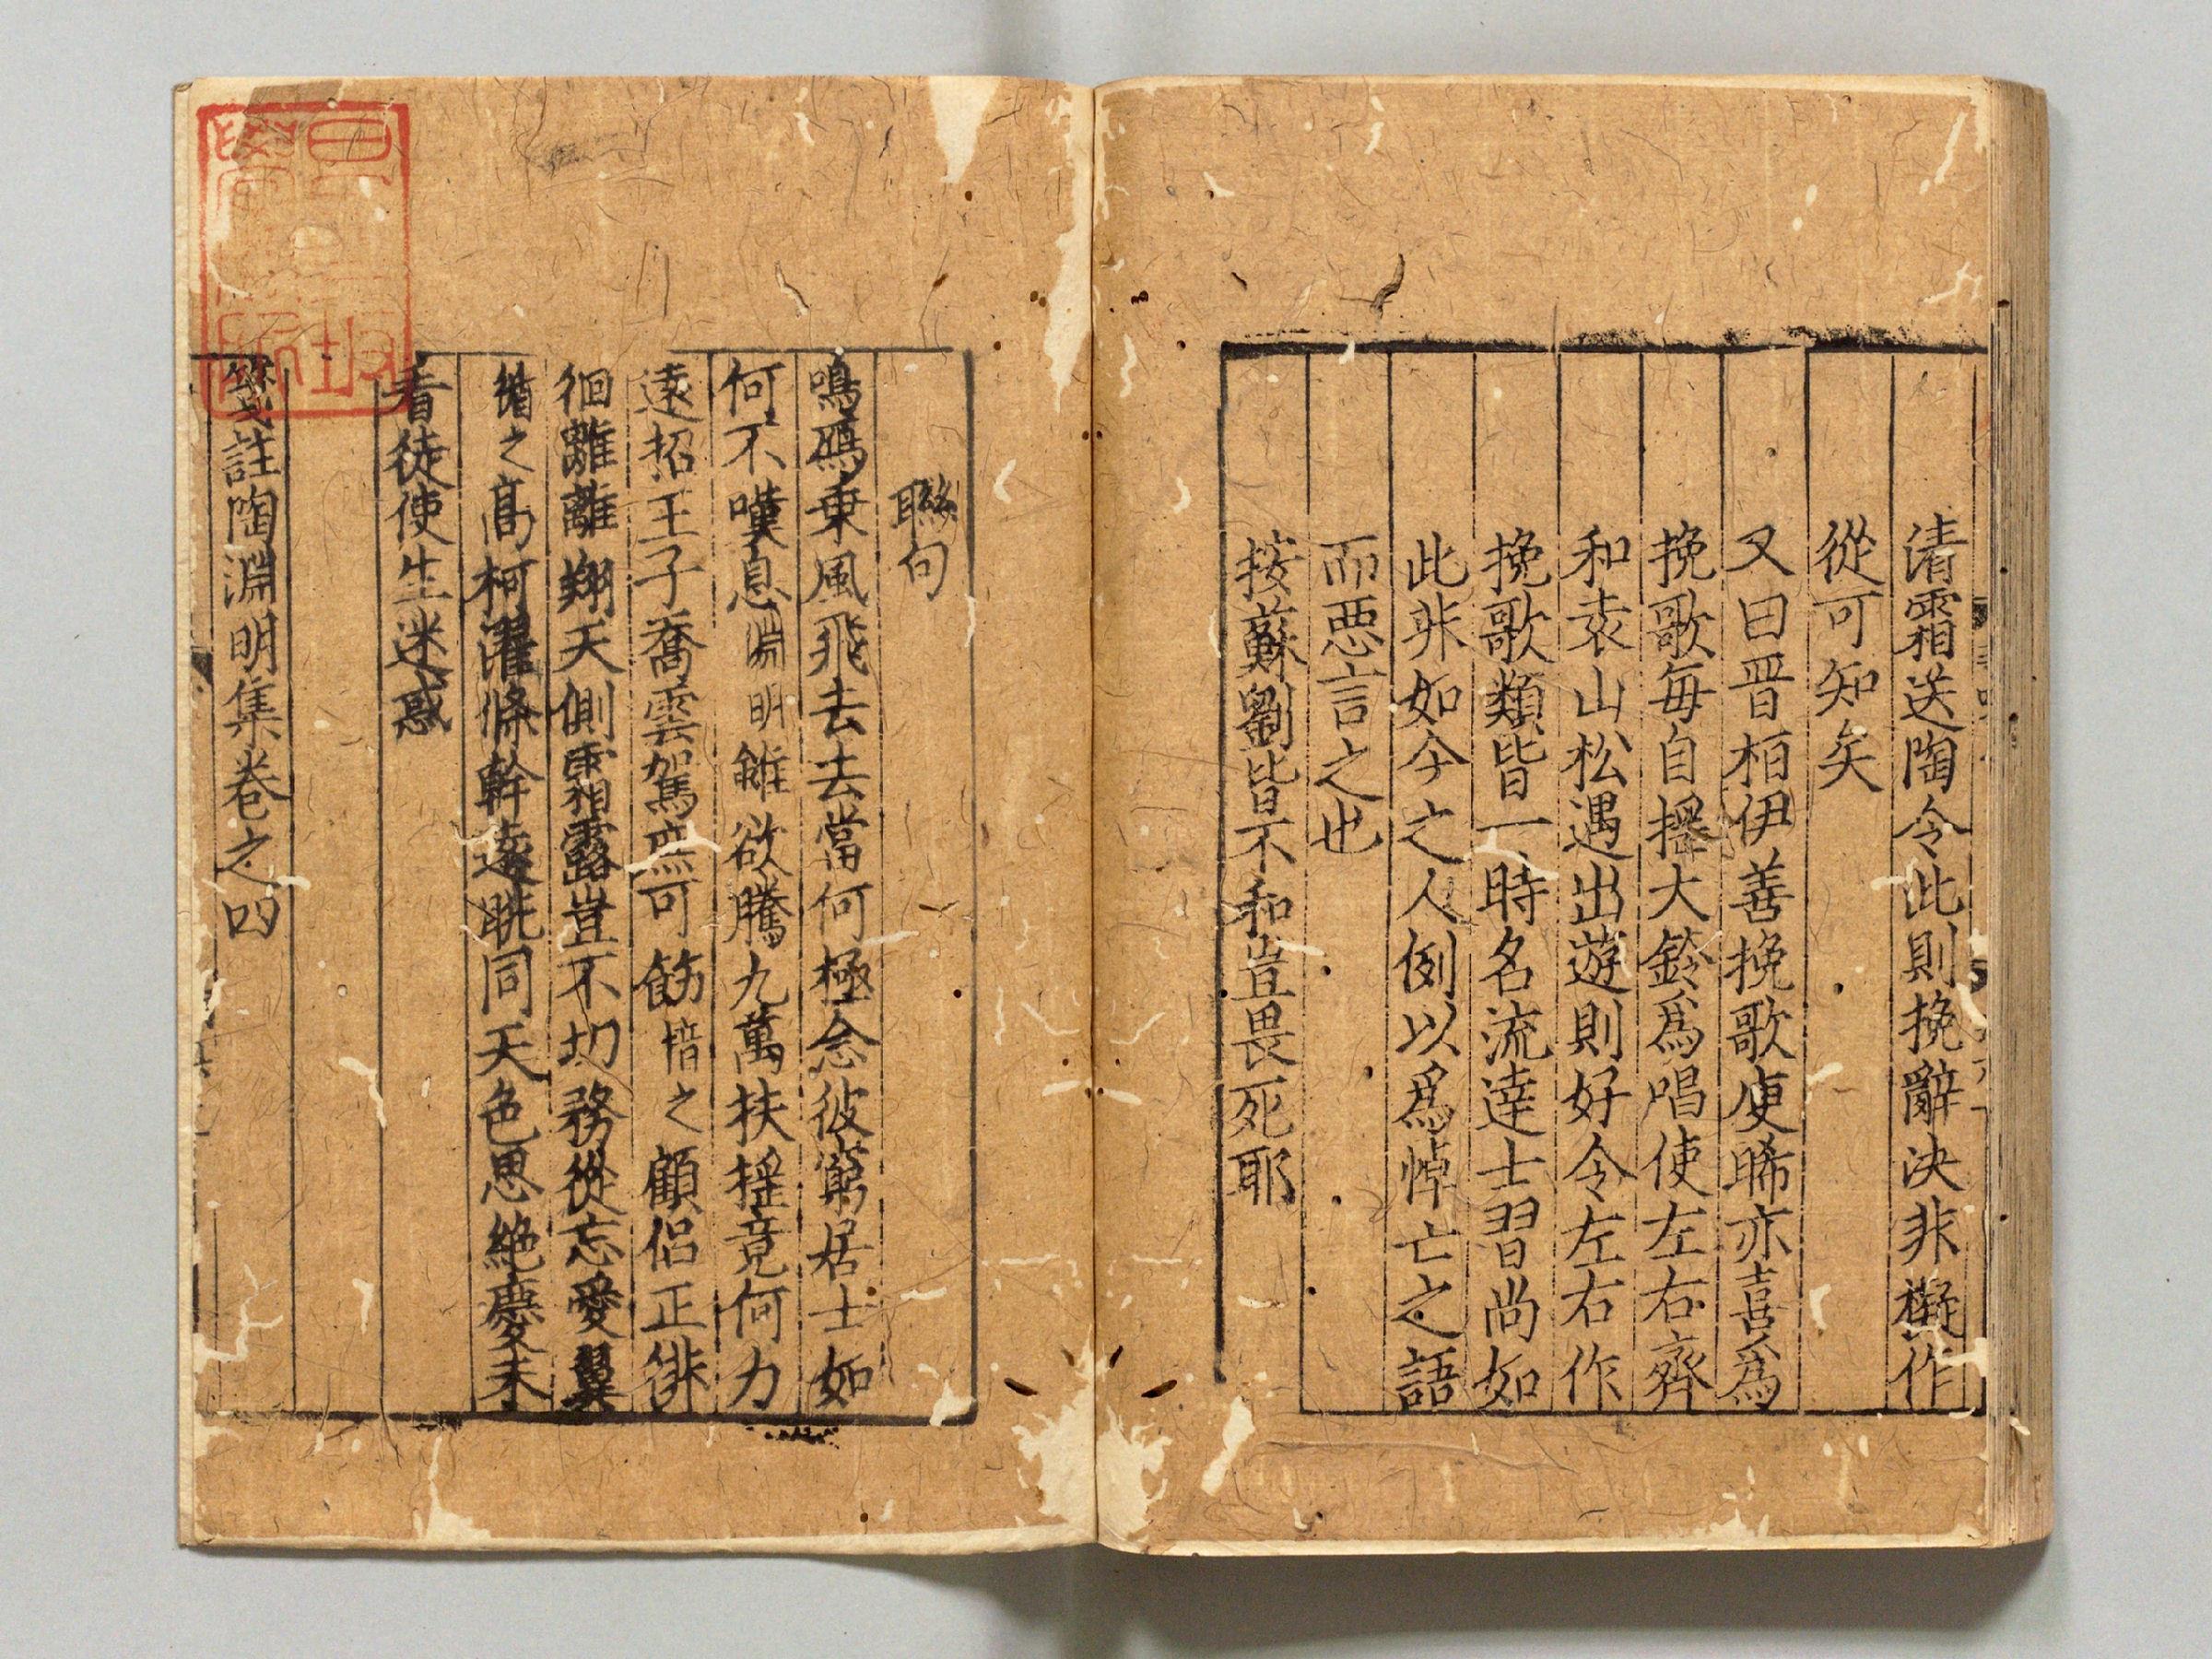 清霜送陶令此則挽辭決非擬作
從可知矣
又曰晋栢伊善挽歌庾晞亦喜爲
挽歌每自揺大鈴爲唱使左右齊
和袁山松遇出遊則好令左右作
挽歌類皆一時名流達士習尚如
此非如今之人例以爲悼亡之語
而惡言之也
按蘇劉皆不和豈畏死耶
聮句
鳴鴈乗風飛去去當何極念彼窮居士如
何不嘆息淵明雖欲騰九萬扶揺竟何力
遠招王子喬雲駕庶可飭愔之顧侣正徘
徊離離翔天側霜露豈不切務從忘愛翼
循之高柯濯條幹遠眺同天色思絶慶未
看徒使生迷惑
箋註陶淵明集卷之四